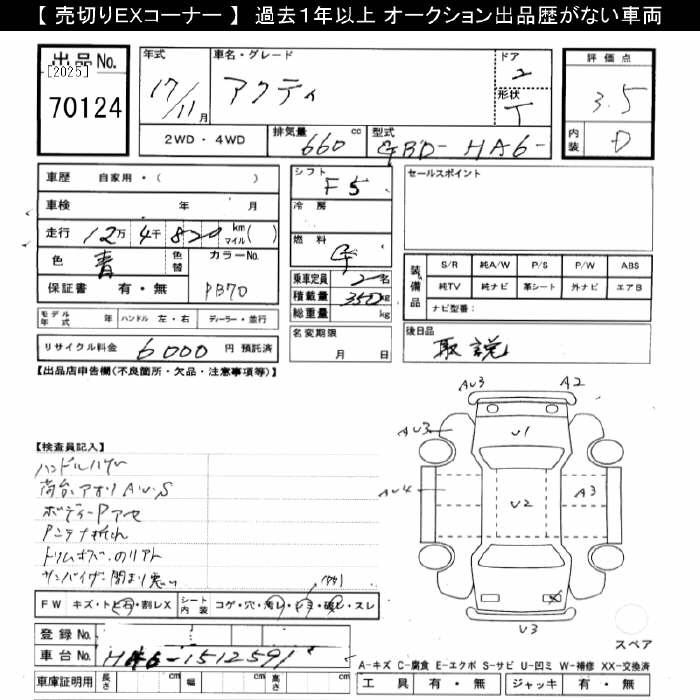 【 売切りEXコーナー 】 過去１年以上 オークション出品歴がない車両
出品No.
[2025]
70124
年式
17/11月
車名・グレード
アクティ
ドア
2
形状
T
評価点
3.5
内装
D
2WD・4WD
排気量
660 cc
型式
GBD-HA6-
車歴 自家用・( )
車検 年 月
走行 12万 4千 820 km マイル( )
色 青 色替
カラーNo.
PB70
保証書 有・無
シフト
F5
冷房
燃料
乗車定員 2名
積載量 350 kg
総重量 kg
セールスポイント
装備品
S/R 純A/W P/S P/W ABS
純TV 純ナビ 革シート 外ナビ エアB
ナビ型番：
モデル年式 年 ハンドル 左・右 ディーラー・並行
リサイクル料金 6000 円 預託済
名変期限
月 日
後日品
取説
【出品店申告欄(不良箇所・欠品・注意事項等)】
AU3 A2
AU3
U1
AU4
U2
A3
U3
【検査員記入】
ハンドルハゲ
荷台アオリA.U.S
ボディーPアセ
Pンテナ折れ
サンバイザー閉まり悪い
FW キズ・トビ石・割レX
シート内装 コゲ・穴・汚レ・シミ・破レ・スレ
登録No.
車台No. HA6-1512591
車庫証明用 長さ cm 幅 cm 高さ cm
スペア
A-キズ C-腐食 E-エクボ S-サビ U-凹ミ W-補修 XX-交換済
工具 有・無 ジャッキ 有・無